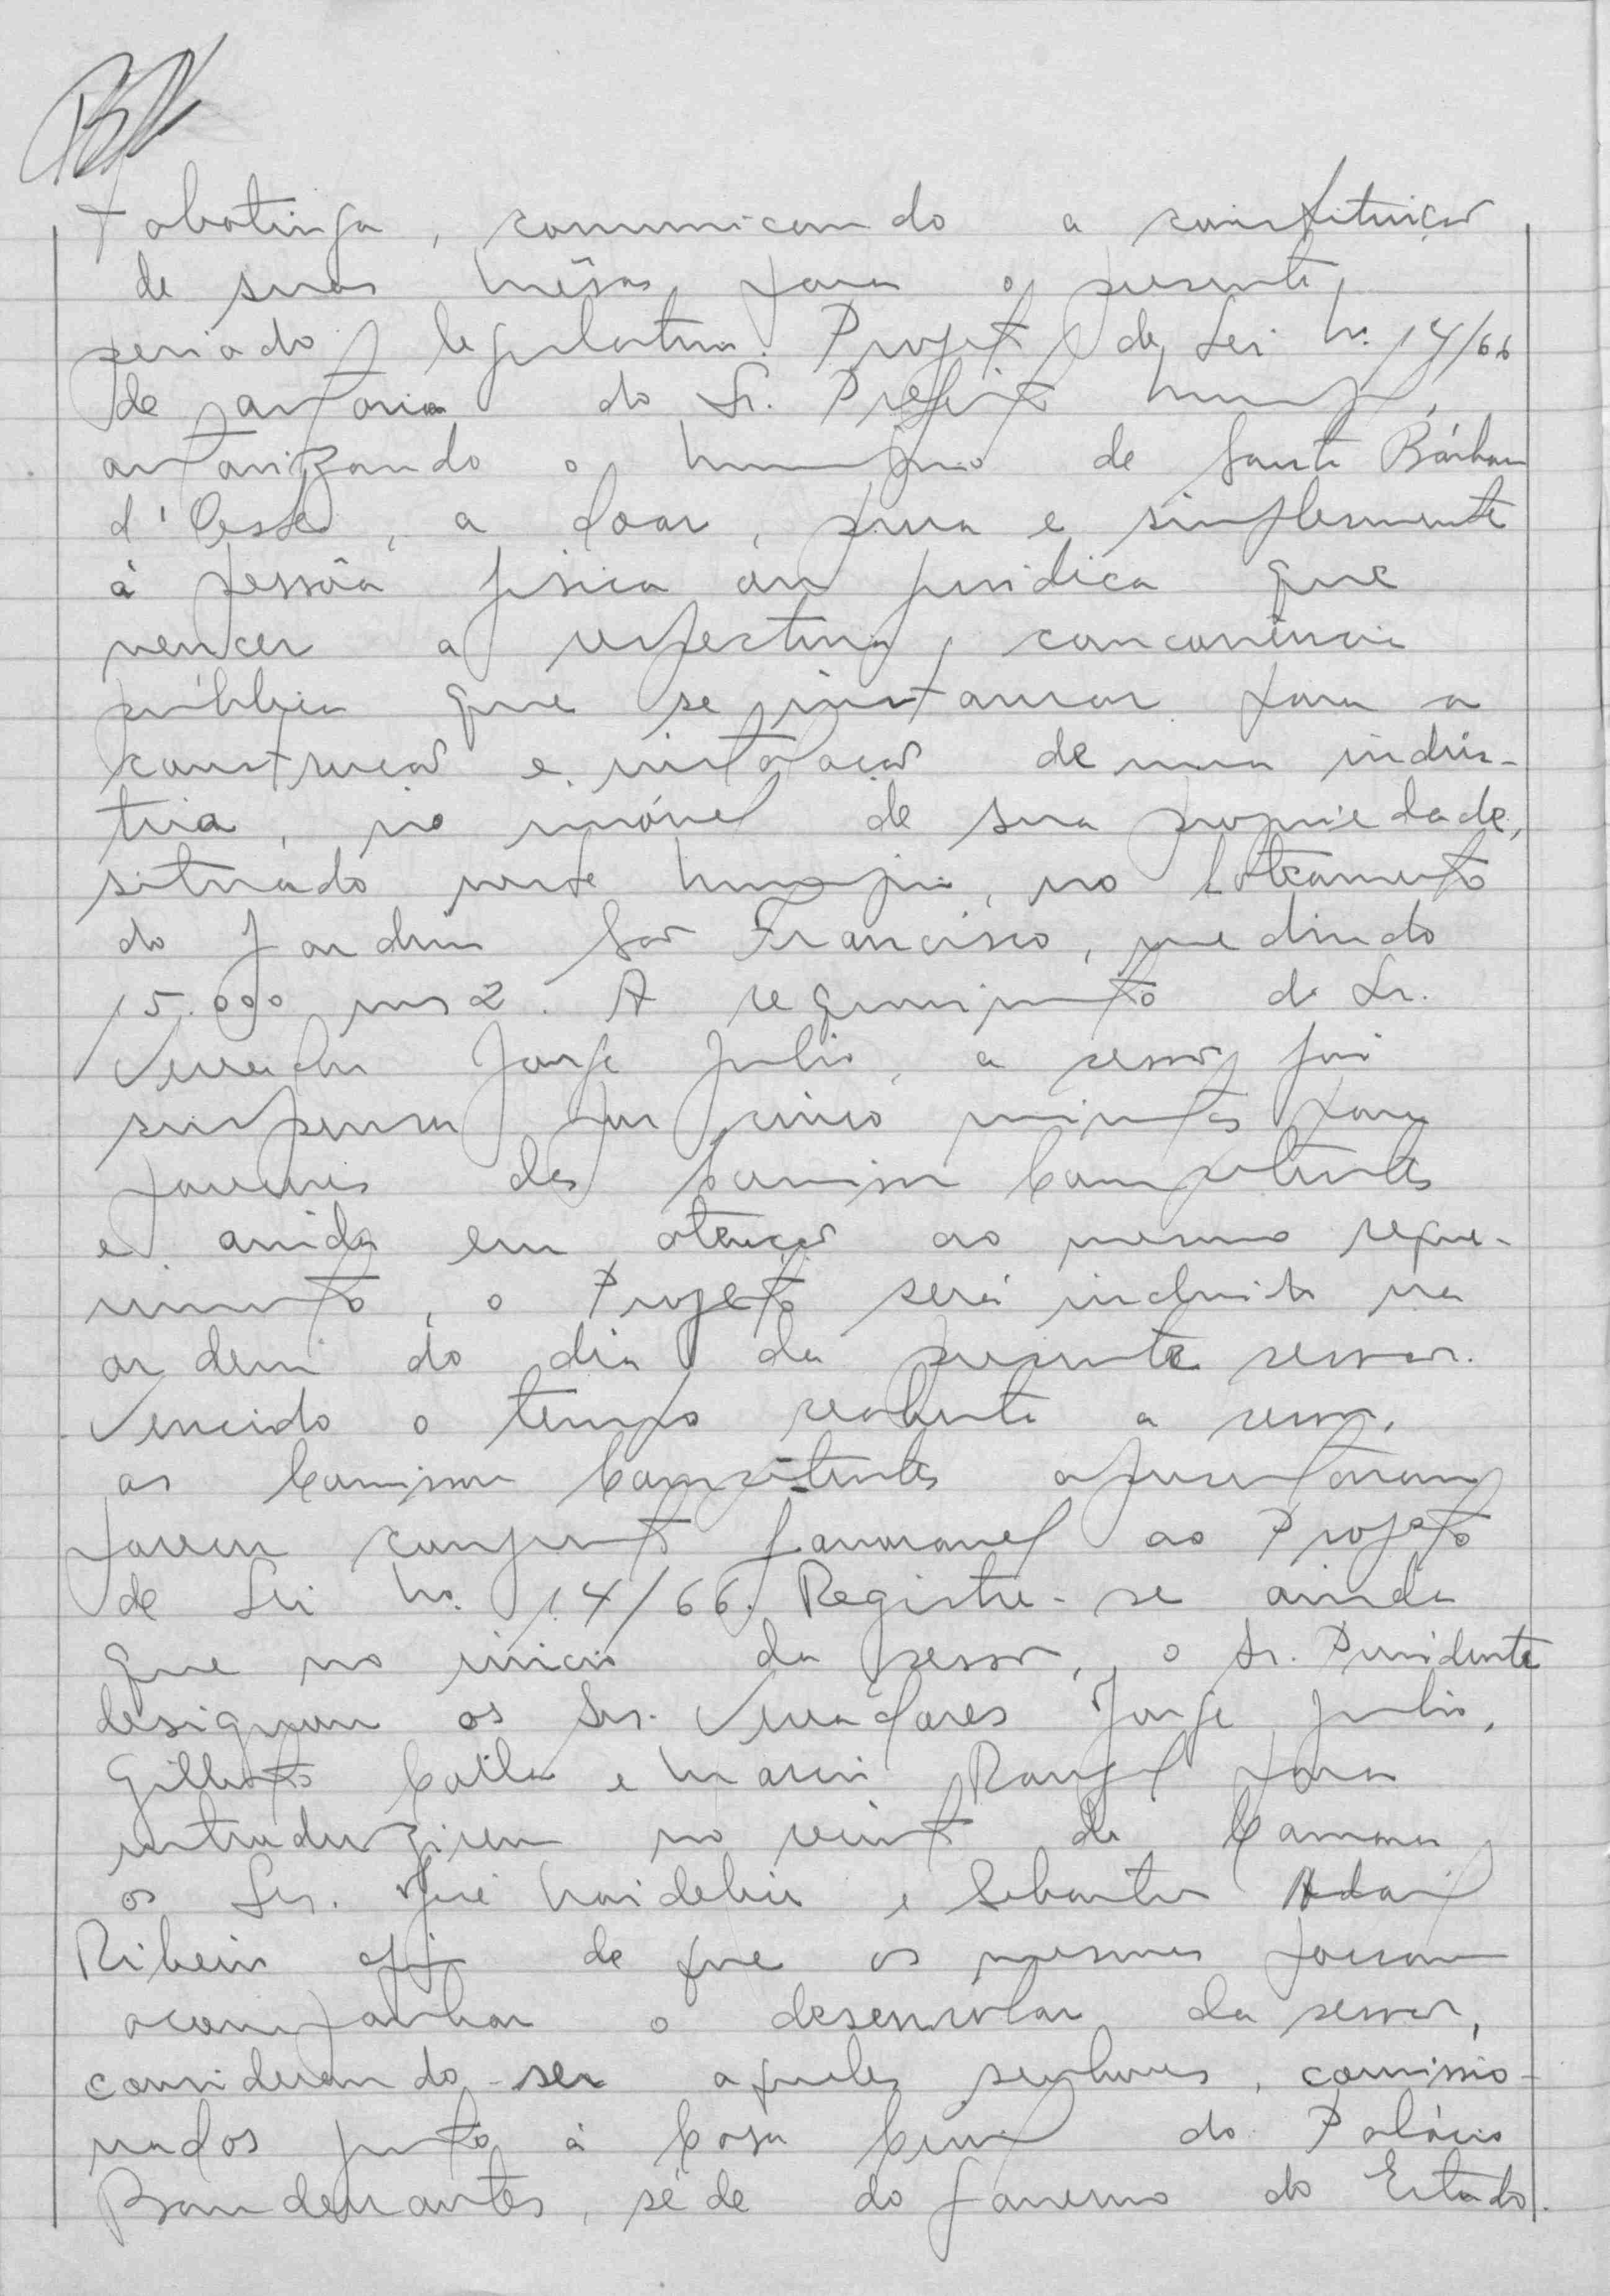 Tabatinga, comunicando a constituição
de suas mêsas para o presente
periodo legislativo. Projeto de Lei nº. 14/66
de autoria do Sr. Prefeito
autorizando o município de Santa Bárbara
d'Oeste, a doar, pura e simplesmente
á pessôa fisica ou juridica que
vencer a respectiva concorrência
pública que se instaurar para a
construção e instalação de uma indús-
tria, no imóvel de sua propriedade,
situado neste município, no loteamento
do Jardim São Francisco, medindo
15.000 ms2. A requerimento do Sr.
Vereador Jorge Julio, a sessão foi
suspensa por cinco minutos para
pareceres das Comissões Competentes
e ainda em atenção ao mesmo reque-
rimento, o Projeto será incluido na
ordem do dia da presente sessão.
Vencido o tempo reaberta a sessão,
as Comissões Competentes apresentaram
parecer conjunto favoravel ao Projeto
de Lei nº. 14/66. Registre-se ainda
que no inicio da sessão, o Sr. Presidente
designou os Srs. Vereadores Jorge Julio,
Gilberto e Rangel para
introduzirem no recinto da Camara
os Srs. José e Sebastião Adail
Ribeiro afim de que os mesmos possam
acompanhar o desenrolar da sessão,
considerando-se aqueles senhores, comissio-
nados junto à Casa Civil do Palácio
Bandeirantes, séde do Governo do Estado.